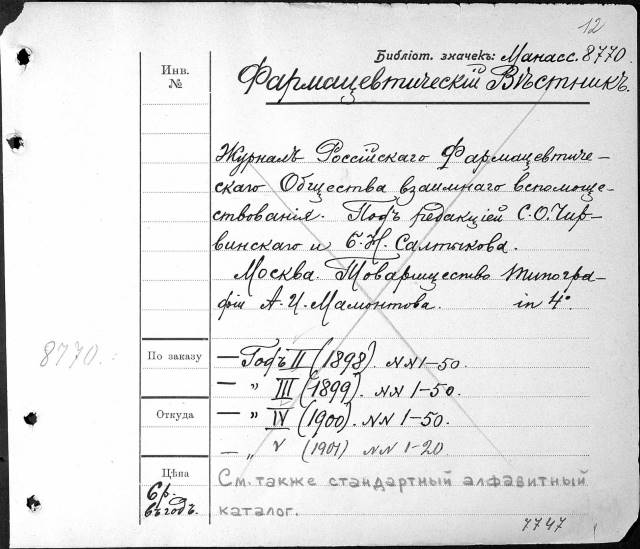 12
Библіот. значекъ: Манасс. 8770.
Инв.
№
Фармацевтическій Вѣстникъ.
Журналъ Россійскаго Фармацевтиче-
скаго Общества взаимнаго вспомоще-
ствованія. Подъ редакціей С.О. Чир-
винскаго и Б.Н. Салтыкова.
Москва. Товарищество типогра-
фіи А.И. Мамонтова. in 4°.
8770.
По заказу
— Годъ II (1898). NN 1-50.
— " III (1899). NN 1-50.
Откуда
— " IV (1900). NN 1-50.
— " V (1901) NN 1-20
Цѣна
6 р.
въ годъ.
См. также стандартный алфавитный
каталог.
7747